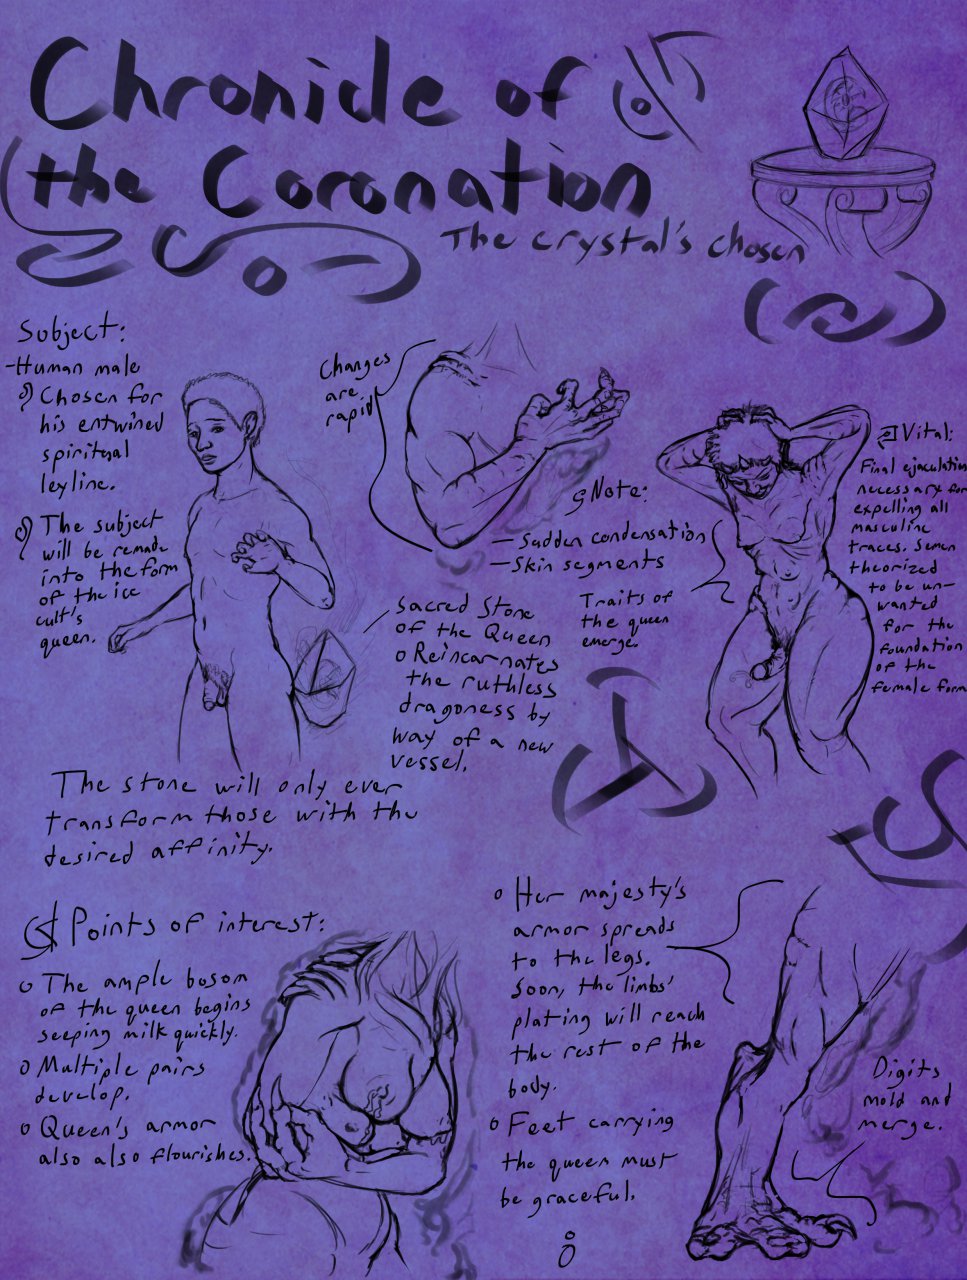 Chronicle of
the Coronation
The crystal's chosen
Subject:
-Human male
Chosen for
his entwined
spiritual
leyline.
The subject
will be remade
into the form
of the ice
cult's
queen.
Changes
are
rapid
Note:
- Sudden condensation
- Skin segments
Traits of
the queen
emerge.
Vital:
Final ejaculation
necessary for
expelling all
masculine
traces. Semen
theorized
to be un-
wanted
for the
foundation
of the
female form
Sacred Stone
of the Queen
o Reincarnates
the ruthless
dragoness by
way of a new
vessel.
The stone will only ever
transform those with the
desired affinity.
Points of interest:
o The ample bosom
of the queen begins
seeping milk quickly.
o Multiple pairs
develop.
o Queen's armor
also also flourishes.
o Her majesty's
armor spreads
to the legs.
Soon, the limbs'
plating will reach
the rest of the
body.
o Feet carrying
the queen must
be graceful.
Digits
mold and
merge.